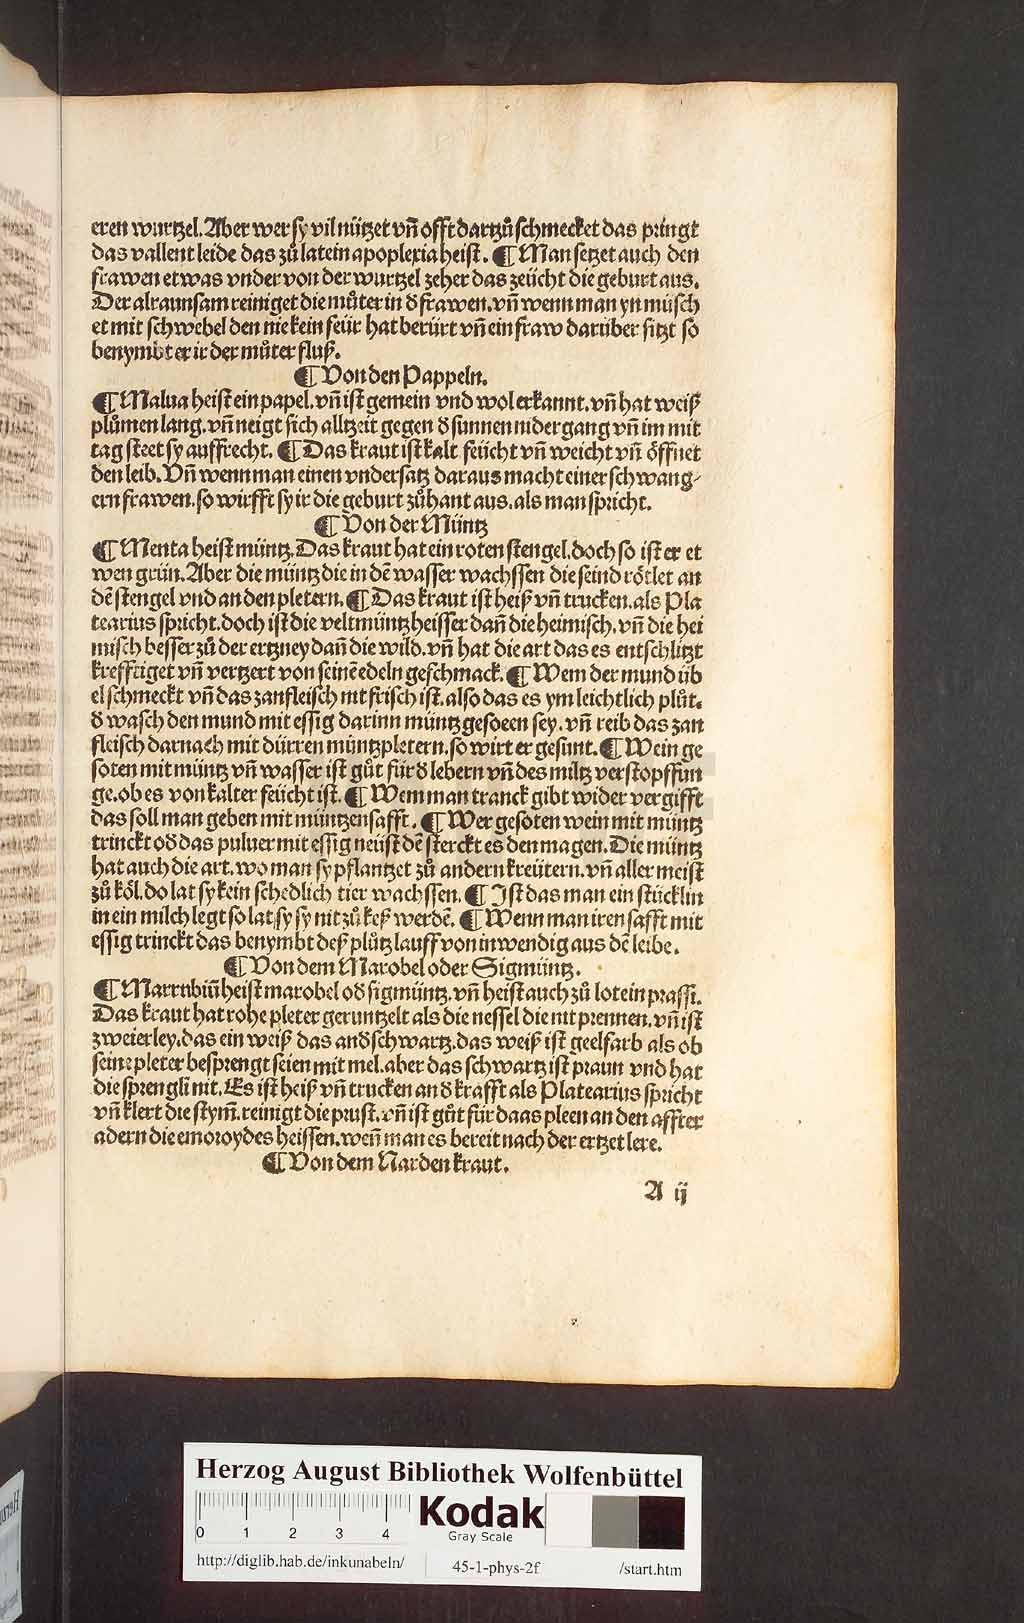 eren wurtzel. Aber wer sy vil nützet vn̄ offt dartzů schmecket das pringt
das vallent leide das zů latein apoplexia heist. ¶ Man setzet auch den
frawen etwas vnder von der wurtzel zeher das zeücht die geburt aus.
Der alraunsam reiniget die můter in d̕ frawen. vn̄ wenn man yn müsch
et mit schwebel den nie kein feür hat berürt vn̄ ein fraw darüber sitzt so
benymbt er ir der můter fluß.
¶ Von den Pappeln.
¶ Malua heist ein papel. vn̄ ist gemein vnd wol erkannt. vn̄ hat weiß
plůmen lang. vn̄ neigt sich alltzeit gegen d̕ sunnen nidergang vn̄ im mit
tag steet sy auffrecht. ¶ Das kraut ist kalt feücht vn̄ weicht vn̄ öffnet
den leib. Vn̄ wenn man einen vndersatz daraus macht einer schwang⸗
ern frawen. so wirfft sy ir die geburt zůhant aus. als man spricht.
¶ Von der Müntz
¶ Menta heist müntz. Das kraut hat ein roten stengel. doch so ist er et
wen grün. Aber die müntz die in dē wasser wachssen die seind rötlet an
dē stengel vnd an den pletern. ¶ Das kraut ist heiß vn̄ trucken. als Pla
tearius spricht. doch ist die veltmüntz heisser dan̄ die heimisch. vn̄ die hei
misch besser zů der ertzney dan̄ die wild. vn̄ hat die art das es entschlitzt
krefftiget vn̄ vertzert von seinē edeln geschmack. ¶ Wem der mund üb
el schmeckt vn̄ das zanfleisch nit frisch ist. also das es ym leichtlich plůt.
d̕ wasch den mund mit essig darinn müntz gesoten sey. vn̄ reib das zan
fleisch darnach mit dürren müntzpletern. so wirt er gesunt. ¶ Wein ge
soten mit müntz vn̄ wasser ist gůt für d̕ lebern vn̄ des miltz verstopffun
ge. ob es von kalter feücht ist. ¶ Wem man tranck gibt wider vergifft
das soll man geben mit müntzensafft. ¶ Wer gesoten wein mit müntz
trinckt od̕ das puluer mit essig neüst dē sterckt es den magen. Die müntz
hat auch die art. wo man sy pflantzet zů andern kreütern. vn̄ aller meist
zů köl. do lat sy kein schedlich tier wachssen. ¶ Ist das man ein stücklin
in ein milch legt so lat sy sy nit zů keß werdē. ¶ Wenn man iren safft mit
essig trinckt das benymbt deß plůtz lauff von inwendig aus dē leibe.
¶ Von dem Marobel oder Sigmüntz.
¶ Marrubiū heist marobel od̕ sigmüntz. vn̄ heist auch zů lotein prassi.
Das kraut hat rohe pleter geruntzelt als die nessel die nit prennen. vn̄ ist
zweierley. das ein weiß das and̕ schwartz. das weiß ist geelfarb als ob
seine pleter besprengt seien mit mel. aber das schwartz ist praun vnd hat
die sprengli nit. Es ist heiß vn̄ trucken an d̕ krafft als Platearius spricht
vn̄ klert die stym̄. reinigt die prust. vn̄ ist gůt für daas pleen an den affter
adern die emoroydes heissen. wen̄ man es bereit nach der ertzet lere.
¶ Von dem Narden kraut.
A ij
Herzog August Bibliothek Wolfenbüttel
0 1 2 3 4
Kodak
Gray Scale
http://diglib.hab.de/inkunabeln/ 45-1-phys-2f /start.htm